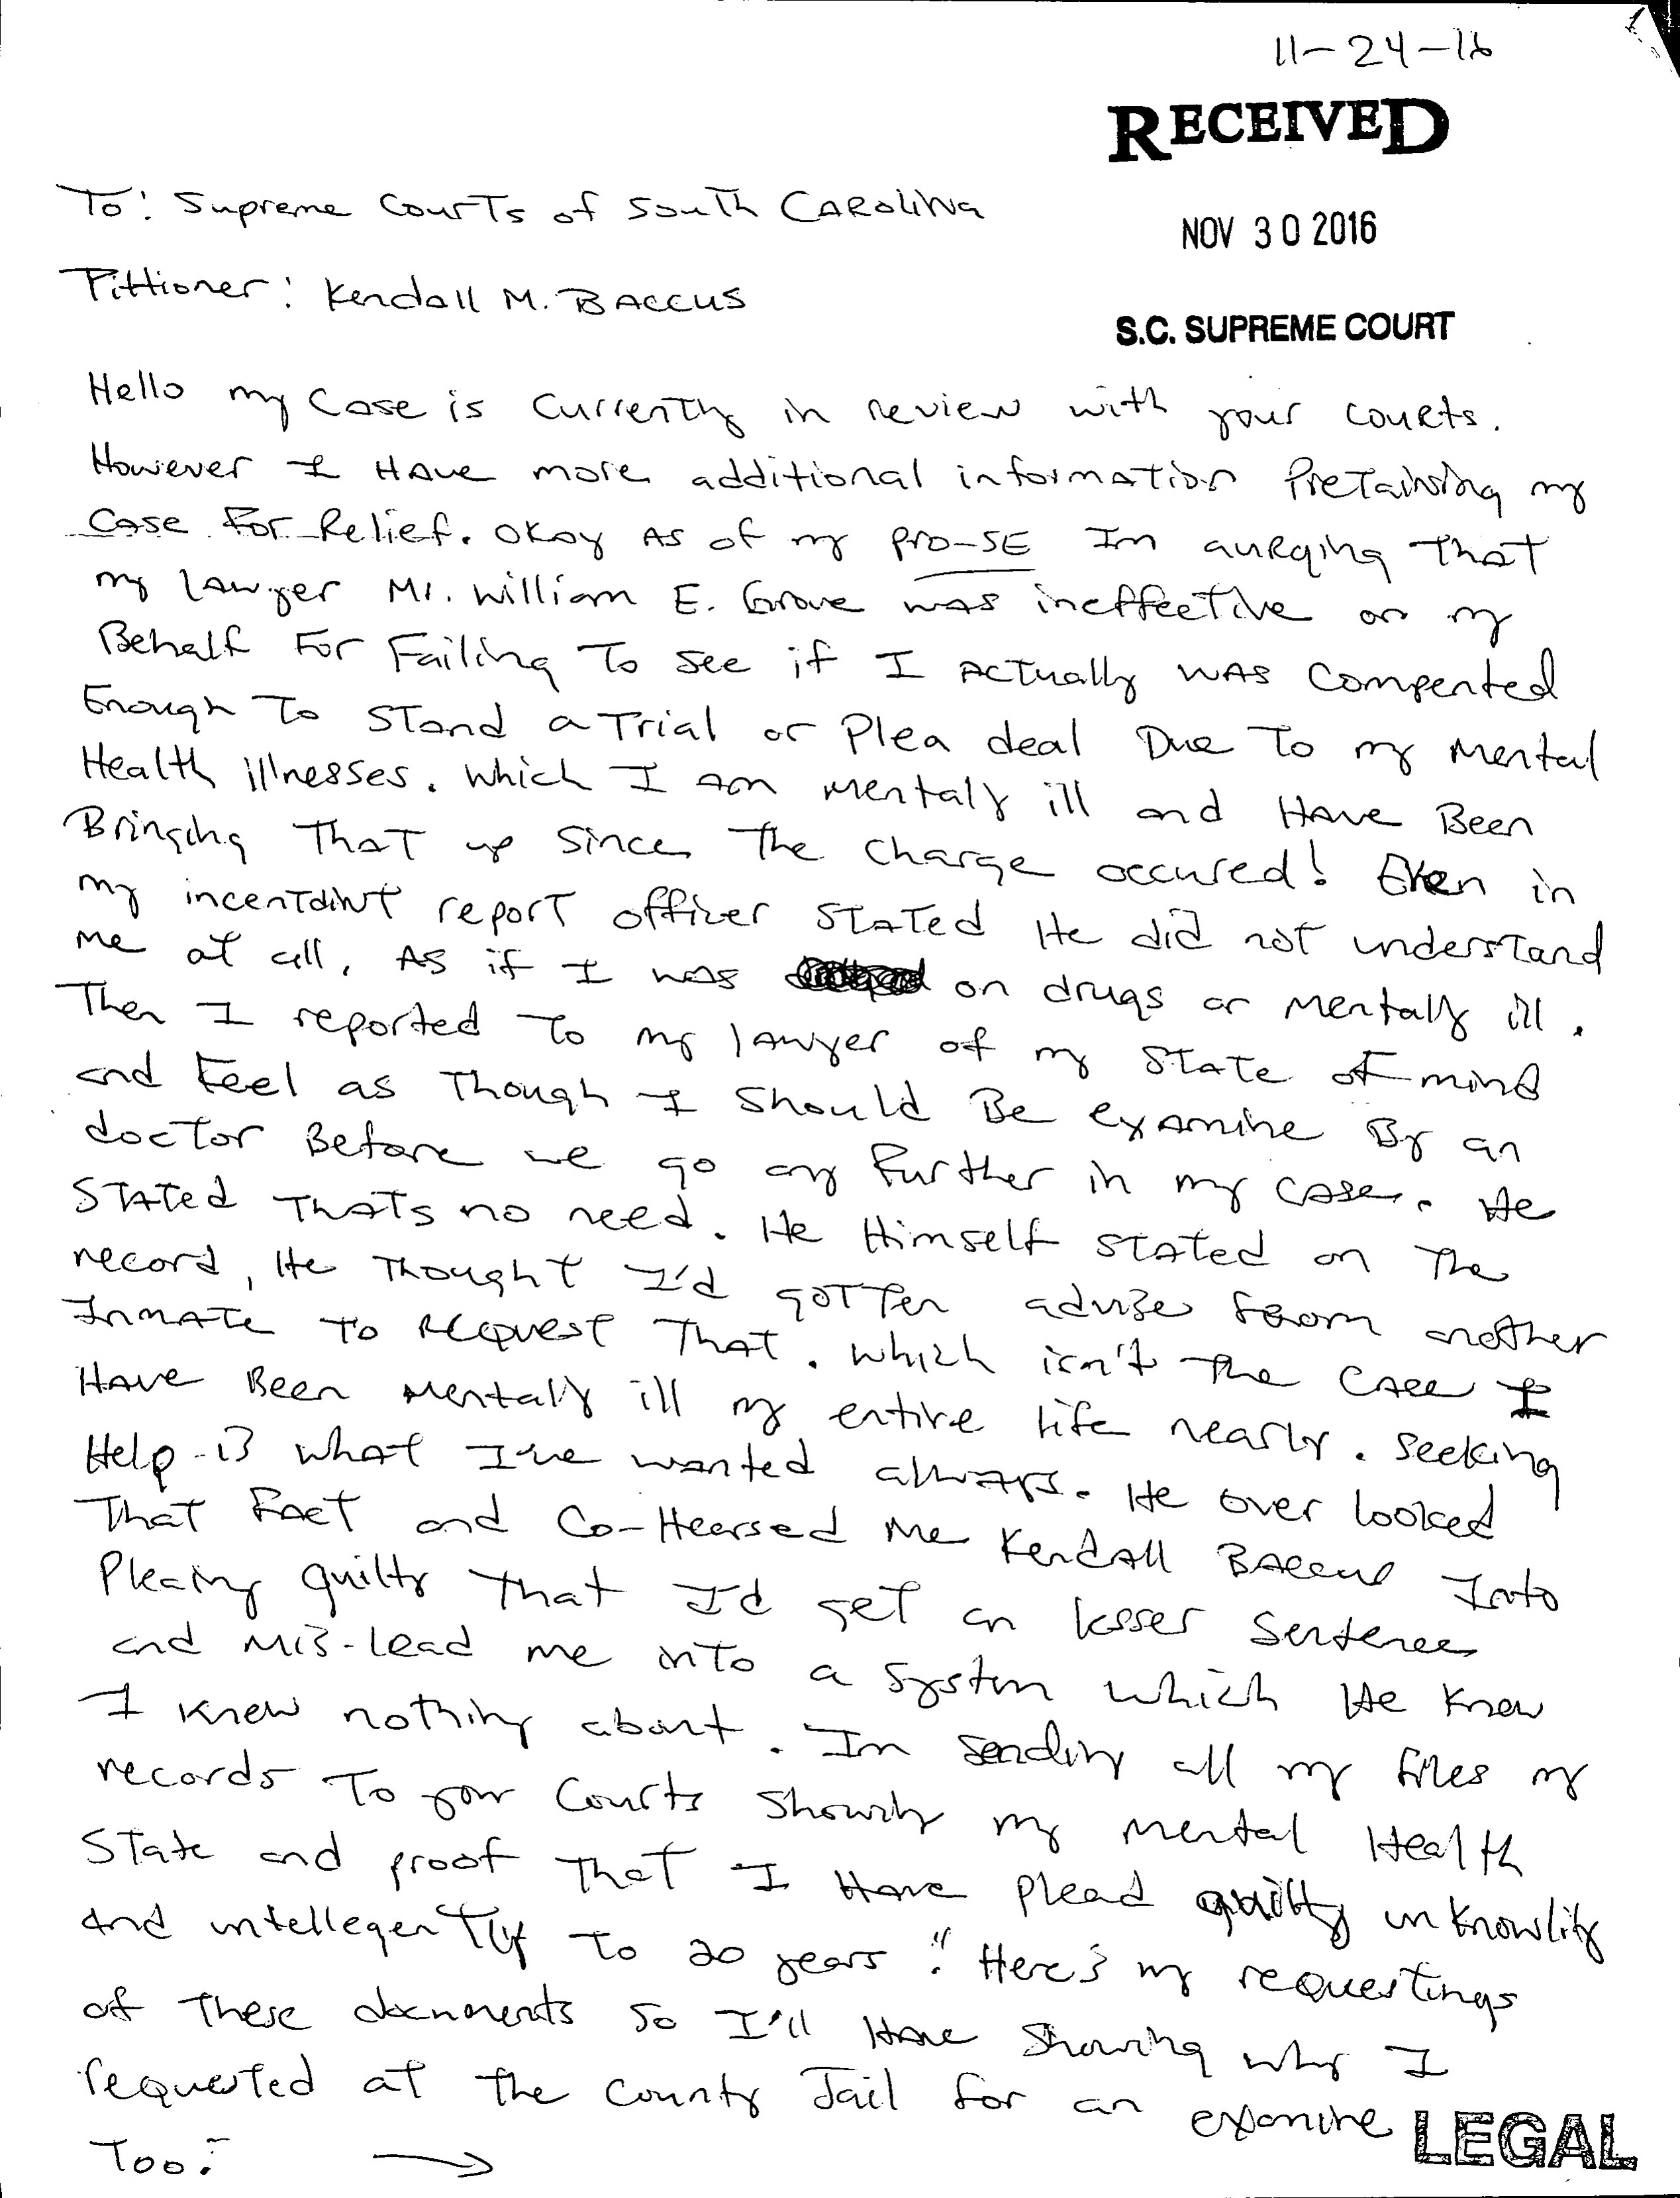 1
11-24-16
RECEIVED
To: Supreme Courts of South Carolina
NOV 30 2016
Pittioner: Kendall M. Baccus
S.C. SUPREME COURT
Hello my Case is Currently in review with your courts.
However I Have more additional information Pretaining my
Case For Relief. Okay As of my Pro-SE Im aurging that
my lawyer Mr. William E. Grove was ineffective on my
Behalf For Failing To see if I Actually was Compented
Enough To Stand a Trial or Plea deal Due To my Mental
Health illnesses. Which I am Mentaly ill and Have Been
Bringing That up Since The Charge occured! Even in
my incentdint report officer Stated He did not understand
me at all, As if I was on drugs or Mentally ill.
Then I reported To my lawyer of my State of mind
and Feel as Though I Should Be examine By an
doctor Before we go any further in my case. He
Stated Thats no need. He Himself Stated on The
record, He Thought I'd gotten advise from another
Inmate To Request That. Which isn't The Case I
Have Been Mentally ill my entire life nearly. Seeking
Help is what I've wanted always. He over looked
That Fact and Co-Hearsed Me Kendall Baccus Into
Pleaing guilty That I'd get an lesser Sentence
and Mis-lead me into a System which He Knew
I Knew nothing about. Im Sending all my files my
records To your Courts Showing my Mental Health
State and proof That I Have Plead guilty unknowlity
And intellegently To 20 years." Here's my requestings
of These documents So I'll Have Showing why I
requested at the County Jail for an examine
Too:- →
LEGAL